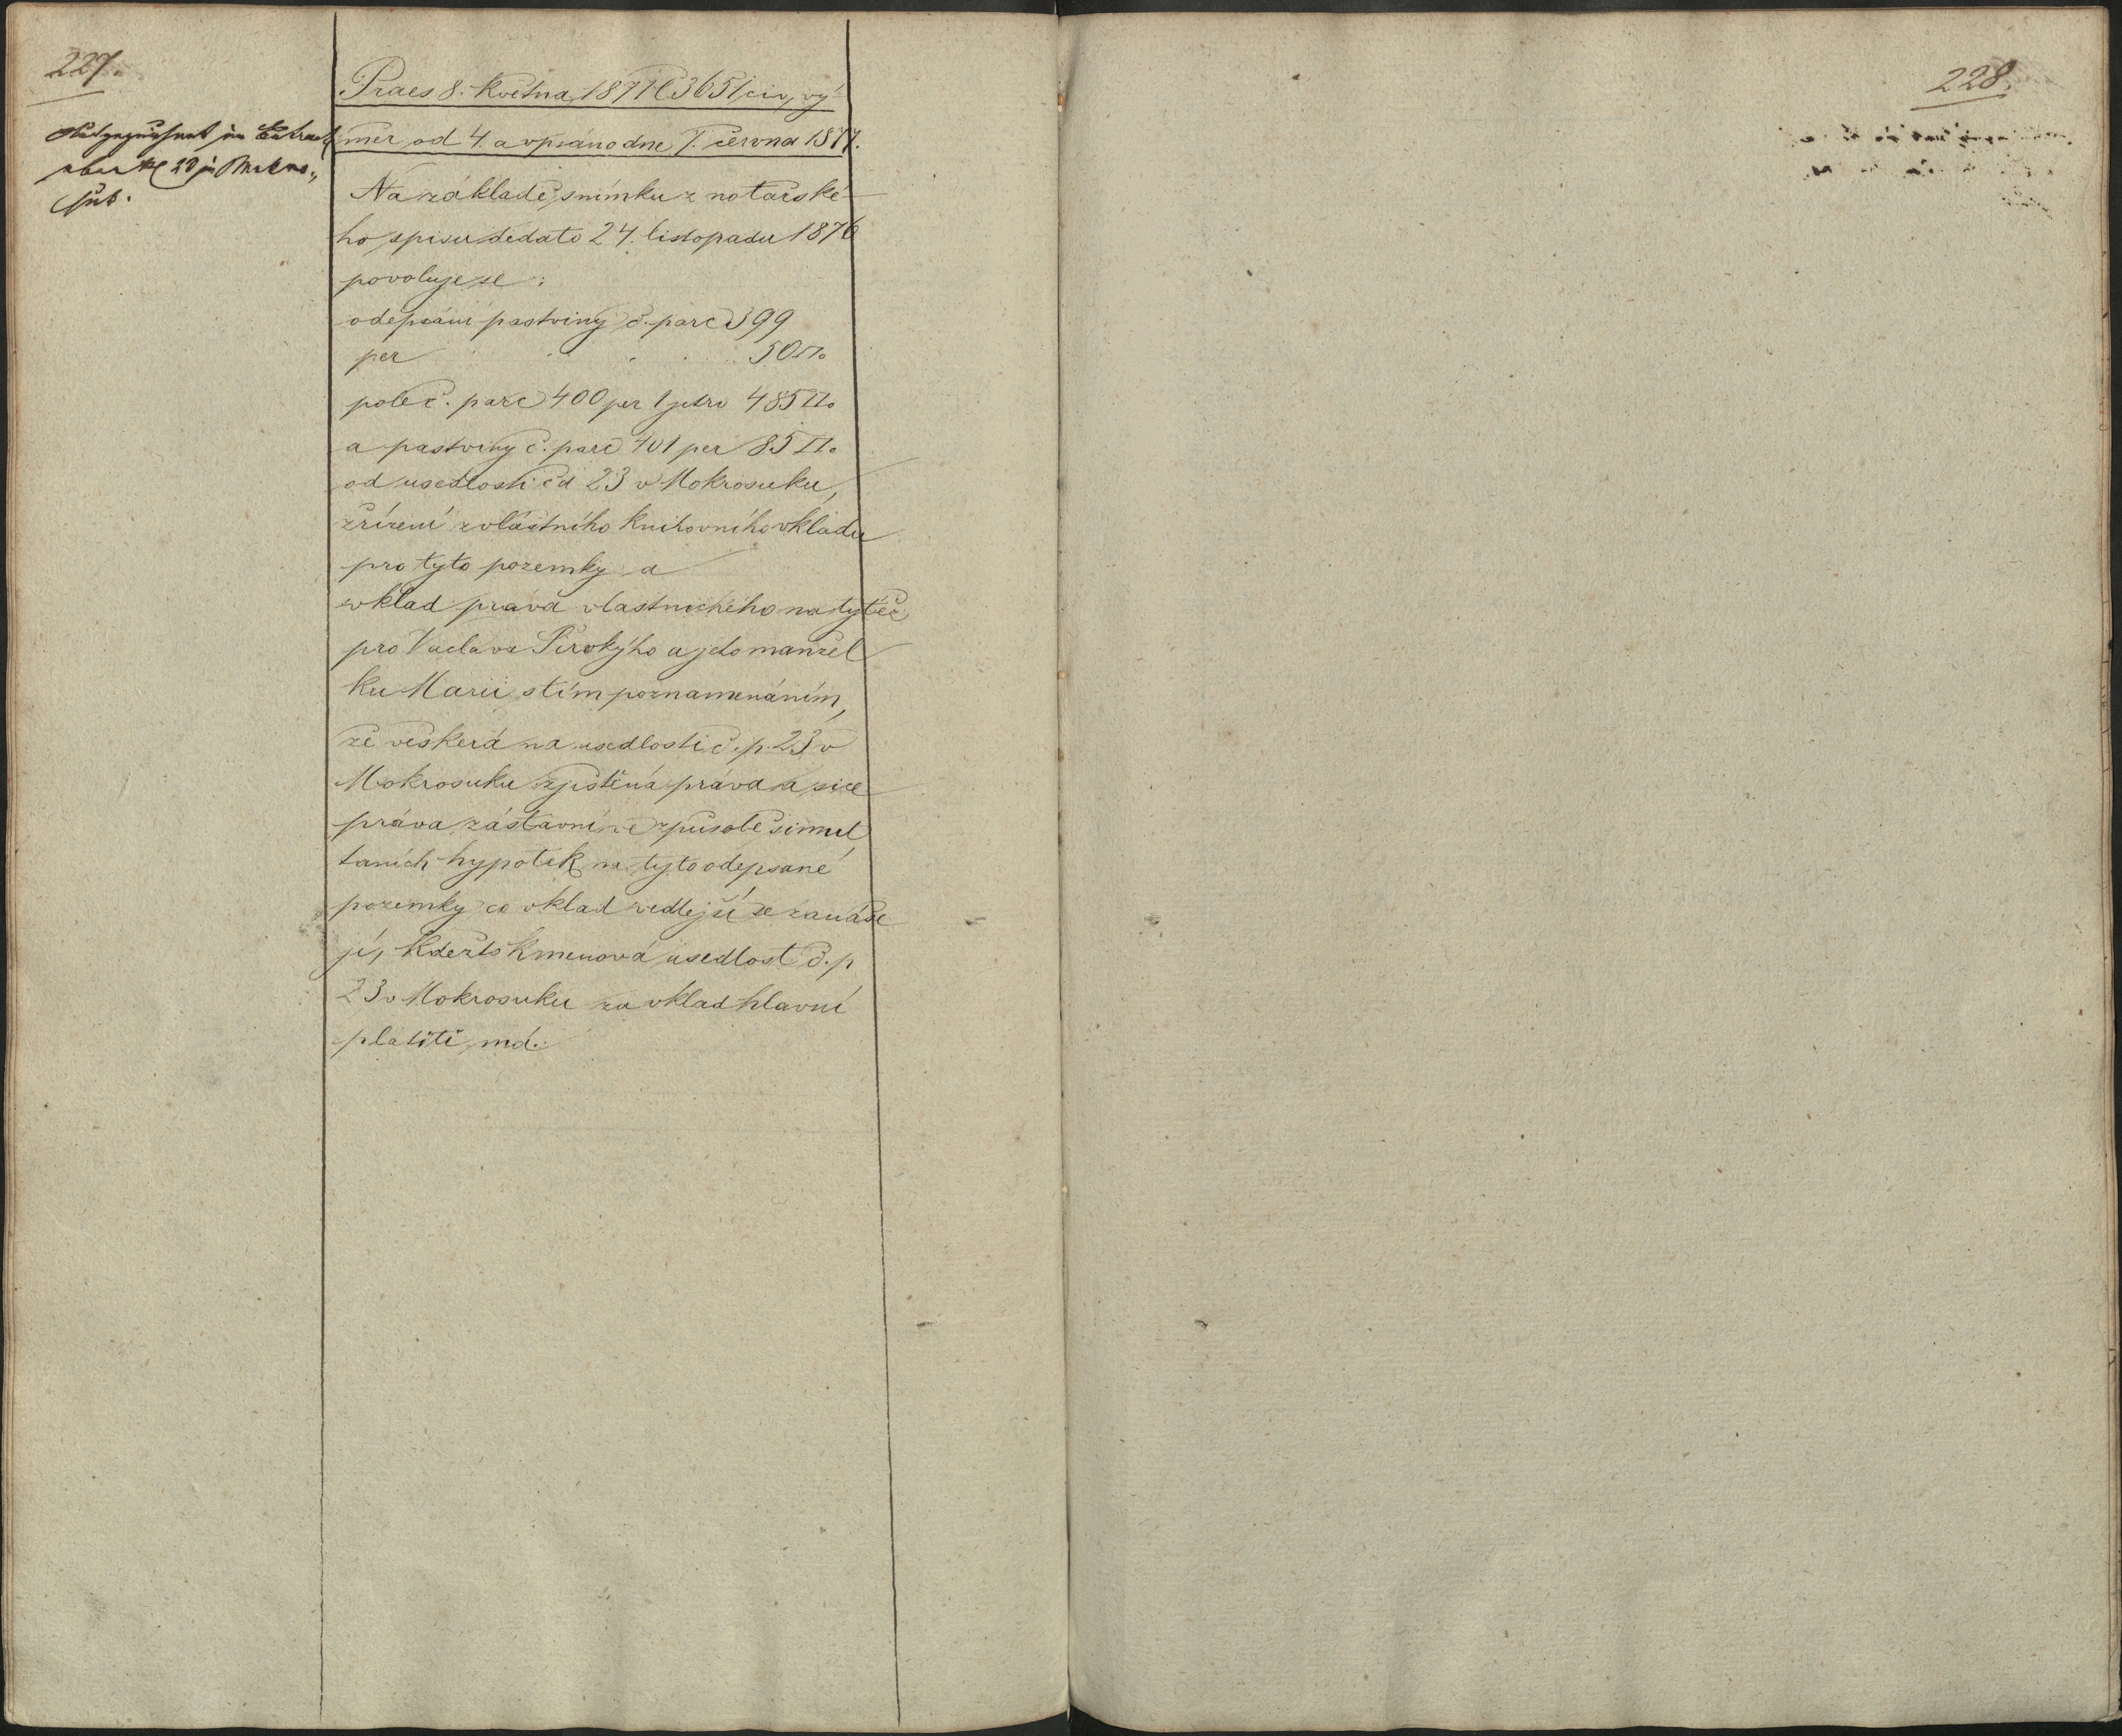 227.
228.
im
23 in Mokro„
suk.
Praes 8. května 1877 č 3651 civ, vý
měr od 4. a vpsáno dne 7. června 1877.
Na základě snímku z notářské
ho spisu dedato 24. listopadu 1876
povoluje se:
odepsání pastviny č. parc 399
per . . . . 50□°
pole č. parc 400 per 1 jitro 485□°
a pastviny č. parc 401 per 85□°
od usedlosti čd 23 v Mokrosuku,
zřízení zvláštního knihovního vkladu
pro tyto pozemky a
vklad práva vlastnického na tytéž
pro Václava Širokýho a jeho manžel
ku Marii s tím poznamenáním,
že veškerá na usedlosti č. p. 23 v
Mokrosuku zjištěná práva a sice
práva zástavní ve způsobě simul
taních hypoték na tyto odepsané
pozemky co vklad vedlejší se zanáše
jí, kdežto kmenová usedlost č. p
23 v Mokrosuku za vklad hlavní
platiti má.